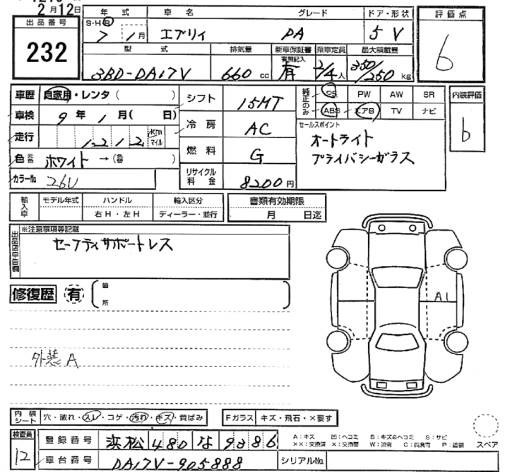 2月12日
出品番号
232
年式 車名 グレード ドア・形状
S・H・R 7年 1月 エブリイ PA 5 V
評価点
6
型式 排気量 新車保証書 乗車定員 最大積載量
3BD-DA17V 660cc 有 2/4人 350/250kg
車歴 自家用・レンタ( )
シフト 15MT
純正のみ PS PW AW SR
ABS エアB TV ナビ
内装評価
b
車検 9年1月( 日)
冷房 AC
セールスポイント
オートライト
プライバシーガラス
走行 1212 Km マイル
燃料 G
色 ホワイト→(色 )
リサイクル料金 8200円
カラーNo 26U
輸入車 モデル年式 ハンドル 輸入区分
右H・左H ディーラー・並行
書類有効期限
月 日迄
※注意事項等記載
セーフティサポートレス
修復歴 有 箇所
A1
外装A
内装シート 穴・破れ・スレ・コゲ・汚れ・キズ・黄ばみ
Fガラス キズ・飛石・×要す
検査員 12
登録番号 浜松 480 な 9386
A：キズ U：ヘコミ B：キズ&ヘコミ S：サビ
スペア
車台番号 DA17V-905888
シリアルNo.